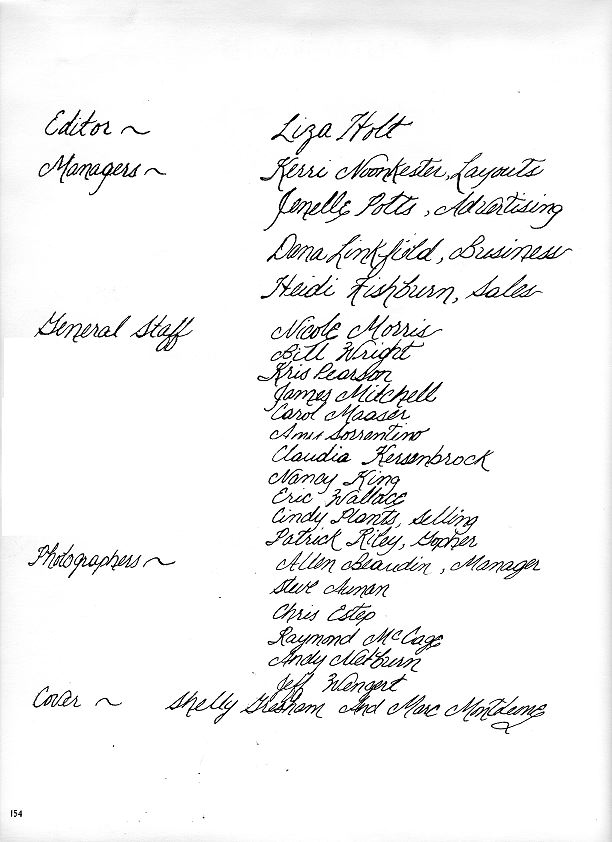 Editor ~ Liza Holt
Managers ~ Kerri Noonkester, Layouts
Jenelle Potts, Advertising
Dana Linkfield, Business
Heidi Fishburn, Sales
General Staff Nicole Morris
Bill Wright
Kris Pearson
James Mitchell
Carol Maaser
Amie Sorrentino
Claudia Kersenbrock
Nancy King
Eric Wallace
Cindy Plants, Selling
Patrick Riley, Gopher
Photographers ~ Allen Beaudin, Manager
Steve
Chris Estep
Raymond McCage
Andy
Jeff Wengert
Cover ~ Shelly Gresham And Marc
154